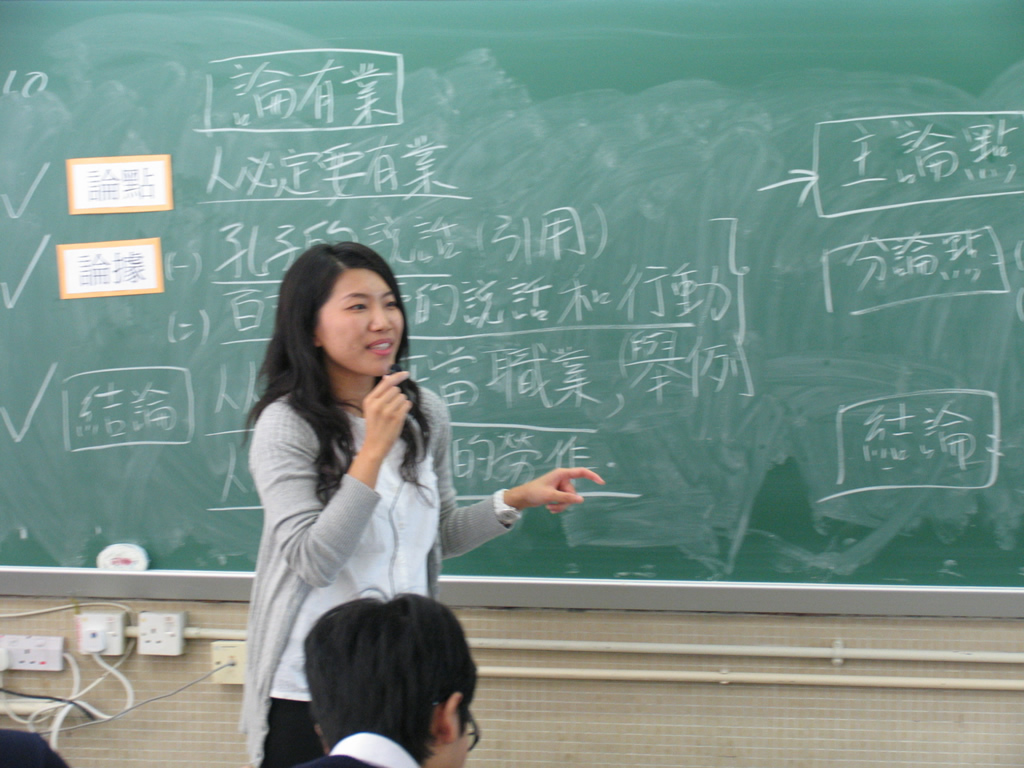 LO
論有業
論點 人必定要有業
論據 (一) 孔子的說話(引用)
(二) 百 的說話和行動
人 正當職業,(舉例)
結論 人 的勞作.
主論點
分論點
結論